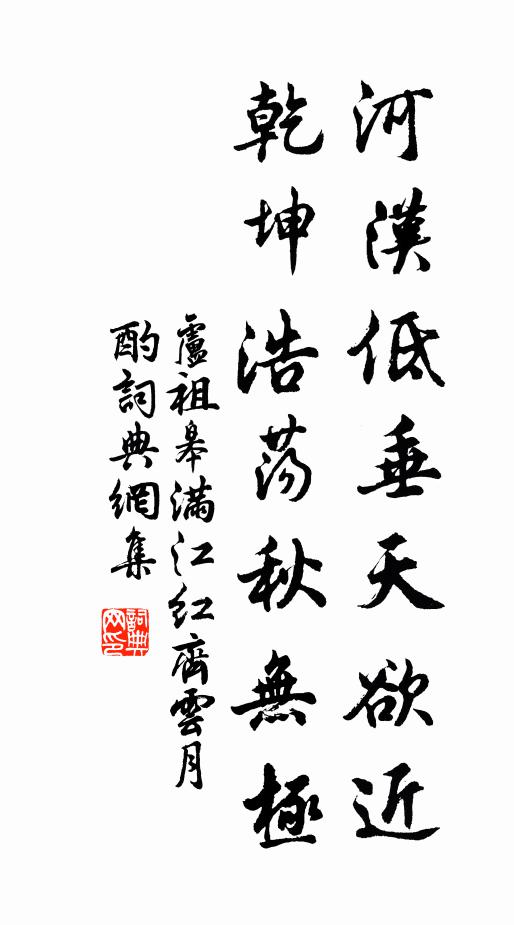 河漢低垂天欲近
乾坤浩荡秋無極
盧祖皋滿江紅齊雲月
酌詞典網集
詞典
网印